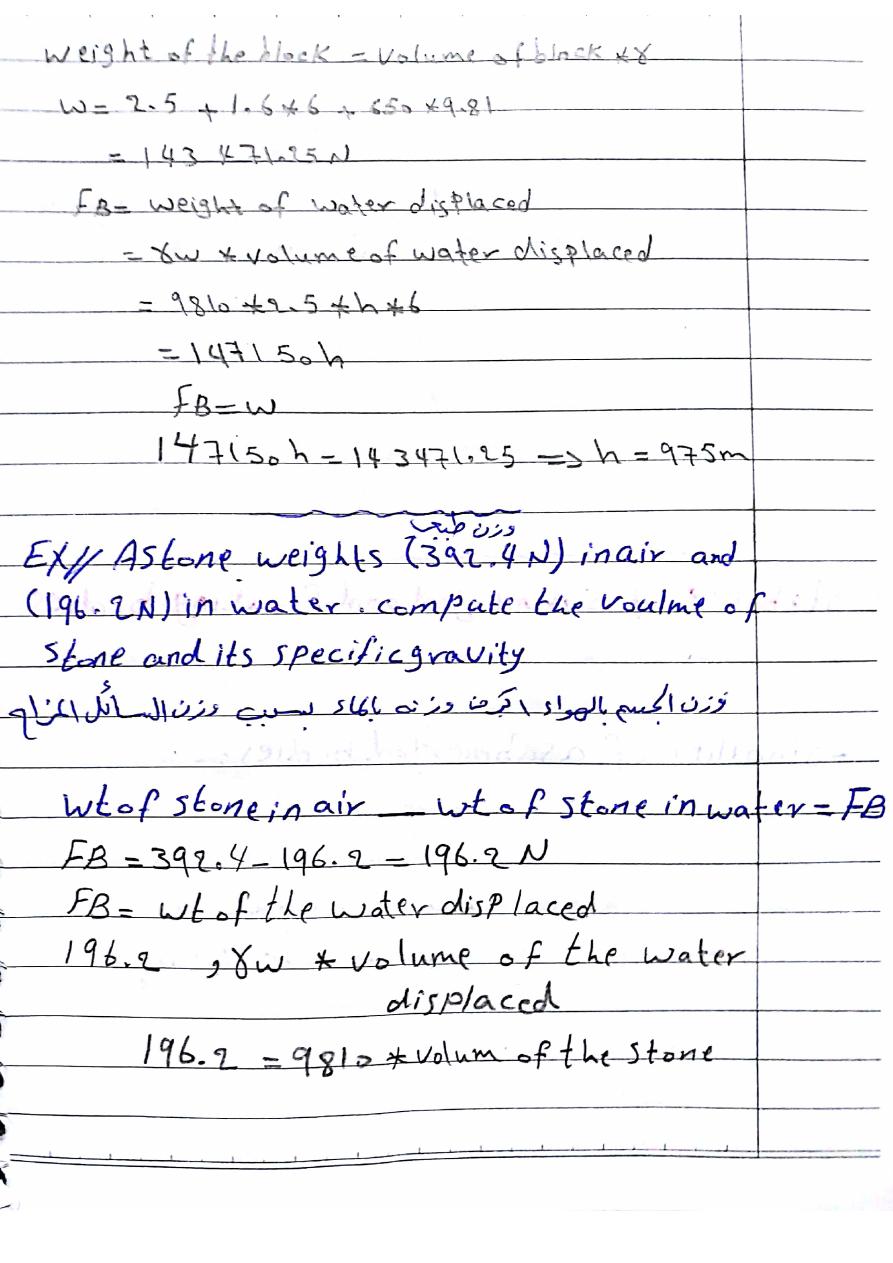 weight of the block = volume of block * γ
W = 2.5 * 1.6 * 6 * 650 * 9.81
= 143471.25 N
FB = weight of water displaced
= γw * volume of water displaced
= 9810 * 2.5 * h * 6
= 147150h
FB = w
147150h = 143471.25 => h = 975m
وزن طبيعي
EX// A stone weights (392.4 N) in air and
(196.2N) in water. compute the voulme of
stone and its specific gravity
فوزن الجسم بالهواء اكبر من وزنه بالماء بسبب وزن السائل المزاح
wt of stone in air — wt of stone in water = FB
FB = 392.4 - 196.2 = 196.2 N
FB = wt of the water displaced
196.2 , γw * volume of the water
displaced
196.2 = 9810 * volum of the stone